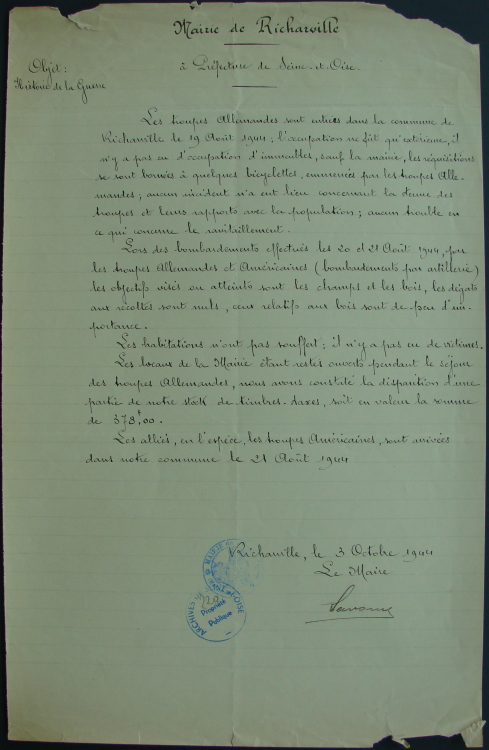 Mairie de Richarville
à Préfecture de Seine-et-Oise.
Objet :
Histoire de la Guerre
Les troupes Allemandes sont entrées dans la commune de
Richarville le 19 Août 1944 ; l'occupation ne fut qu'extérieure, il
n'y a pas eu d'occupation d'immeubles, sauf la mairie, les réquisitions
se sont bornées à quelques bicyclettes, emmenées par les troupes Alle-
mandes ; aucun incident n'a eu lieu concernant la tenue des
troupes et leurs rapports avec la population ; aucun trouble en
ce qui concerne le ravitaillement.
Lors des bombardements effectués les 20 et 21 Août 1944, par
les troupes Allemandes et Américaines (bombardements par artillerie)
les objectifs visés ou atteints sont les champs et les bois, les dégâts
aux récoltes sont nuls, ceux relatifs aux bois sont de peu d'im-
portance.
Les habitations n'ont pas souffert ; il n'y a pas eu de victimes.
Les locaux de la Mairie étant restés ouverts pendant le séjour
des troupes Allemandes, nous avons constaté la disparition d'une
partie de notre stock de timbres-taxes, soit en valeur la somme
de 378f,00.
Les alliés, en l'espèce, les troupes Américaines, sont arrivées
dans notre commune le 21 Août 1944
Richarville, le 3 Octobre 1944
Le Maire
ARCHIVES OISE
Propriété
Publique